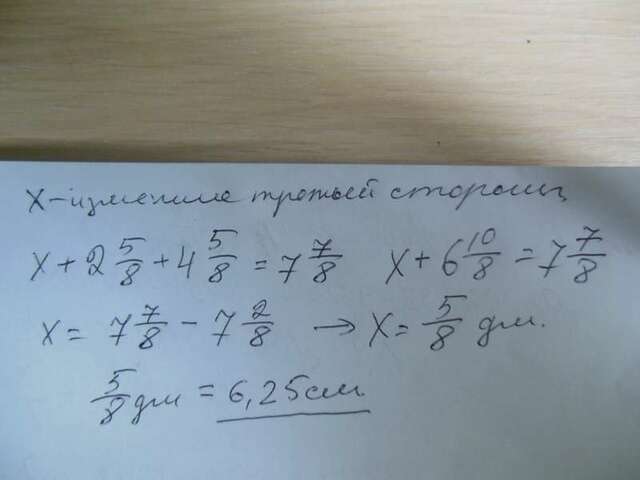 x - измение третьей стороны
x + 2 5/8 + 4 5/8 = 7 7/8 x + 6 10/8 = 7 7/8
x = 7 7/8 - 7 2/8 → x = 5/8 дм.
5/8 дм = 6,25 см